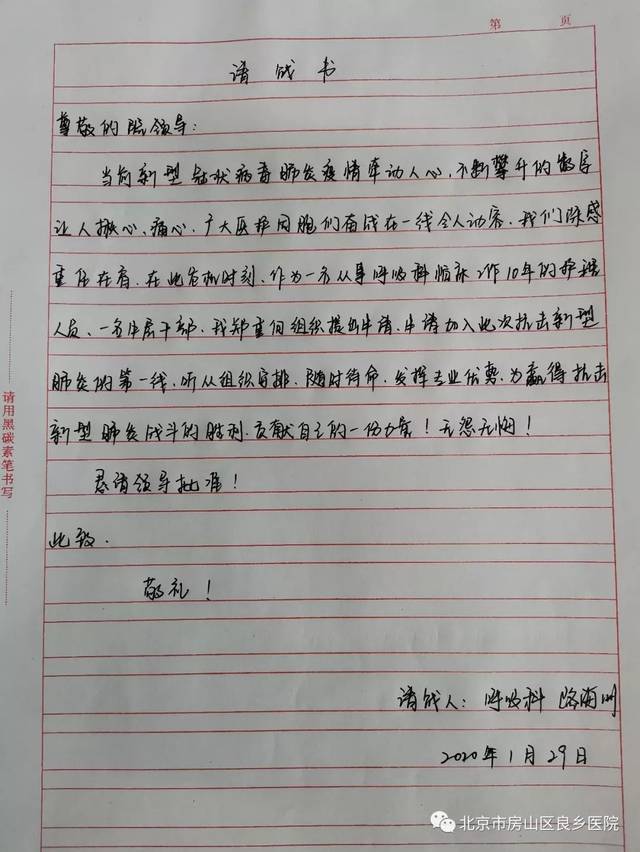 第 页
请战书
尊敬的院领导:
当前新型冠状病毒肺炎疫情牵动人心,不断攀升的数字
让人揪心、痛心。广大医护同胞们奋战在一线令人动容。我们深感
重任在肩。在此危机时刻,作为一名从事呼吸科临床工作10年的护理
人员、一名中层干部,我郑重向组织提出申请,申请加入此次抗击新型
肺炎的第一线,听从组织安排,随时待命,发挥专业优势,为赢得抗击
新型肺炎战斗的胜利,贡献自己的一份力量!无怨无悔!
恳请领导批准!
此致.
敬礼!
请战人:呼吸科 路
2020年1月29日
请用黑碳素笔书写
北京市房山区良乡医院